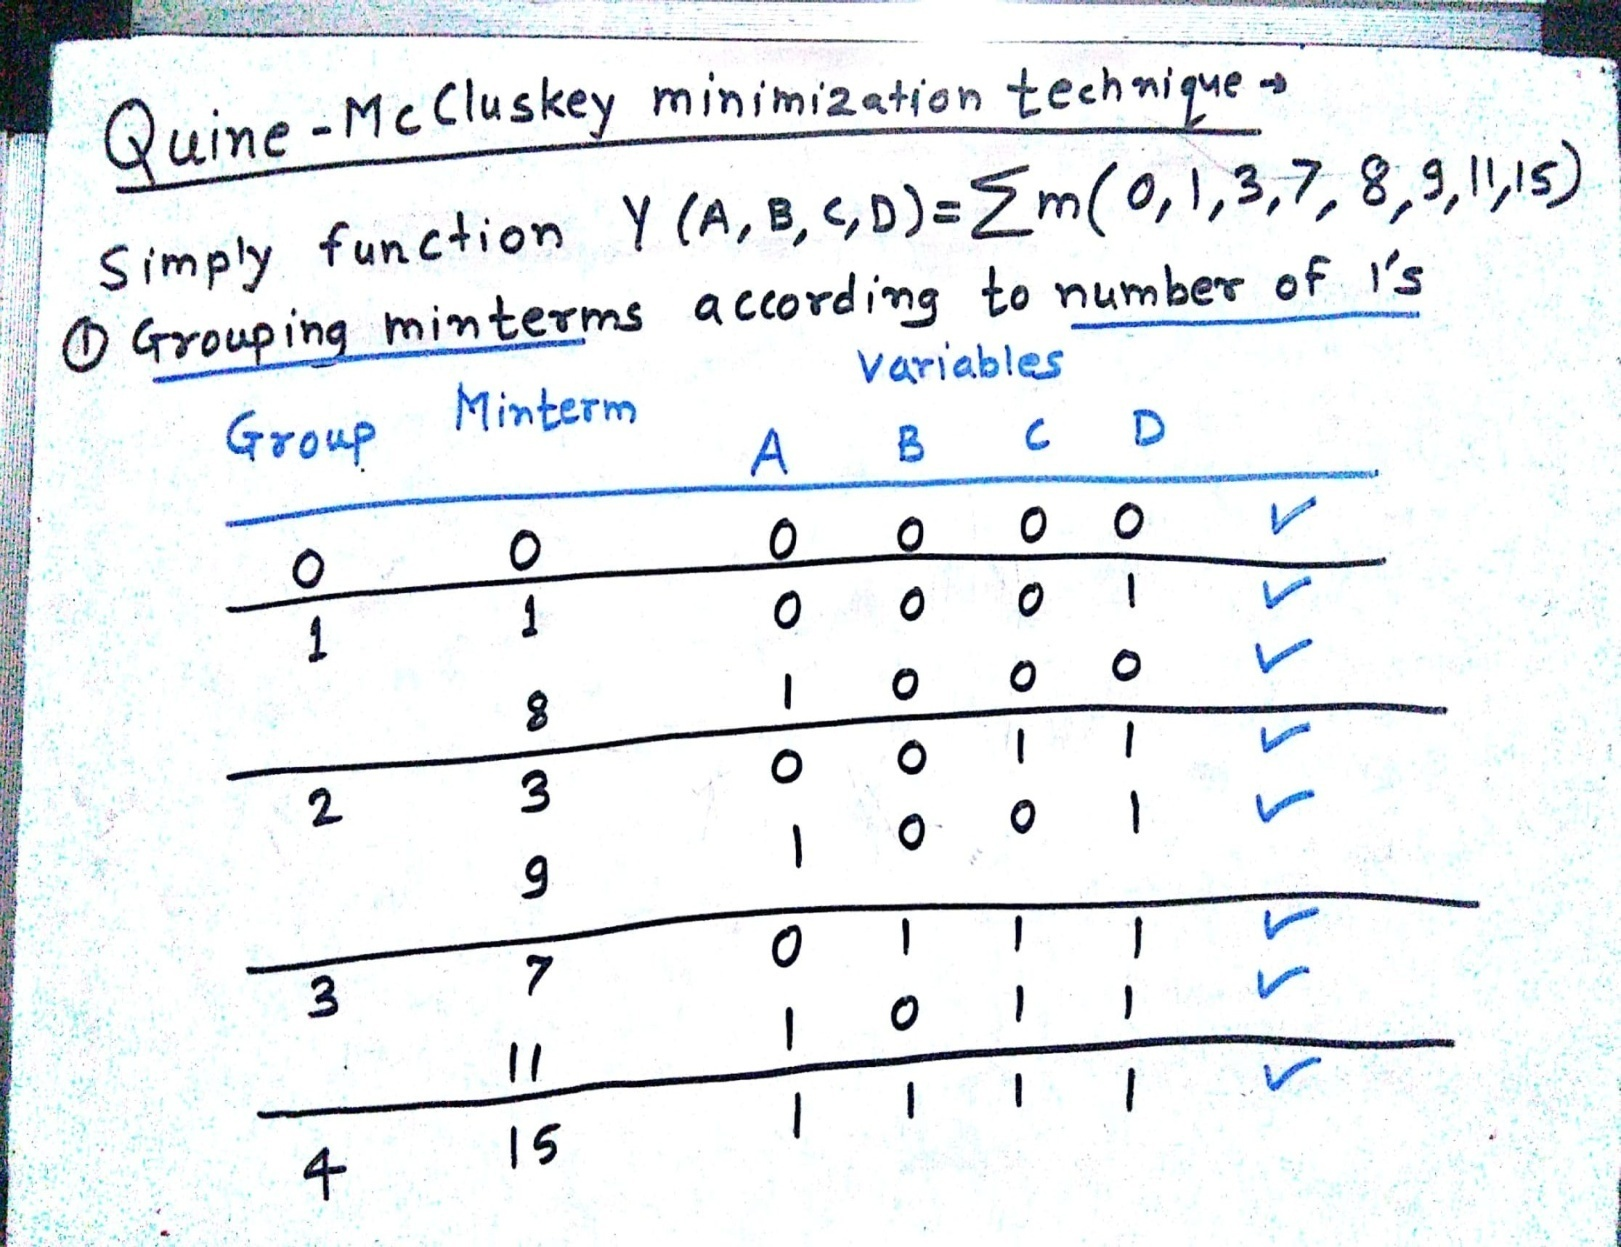 Quine-McCluskey minimization technique →
Simply function Y (A, B, C, D) = Σ m( 0, 1, 3, 7, 8, 9, 11, 15)
① Grouping minterms according to number of 1's
Group Minterm Variables
A B C D
0 0 0 0 0 0 ✓
1 1 0 0 0 1 ✓
8 1 0 0 0 ✓
2 3 0 0 1 1 ✓
9 1 0 0 1 ✓
3 7 0 1 1 1 ✓
11 1 0 1 1 ✓
4 15 1 1 1 1 ✓